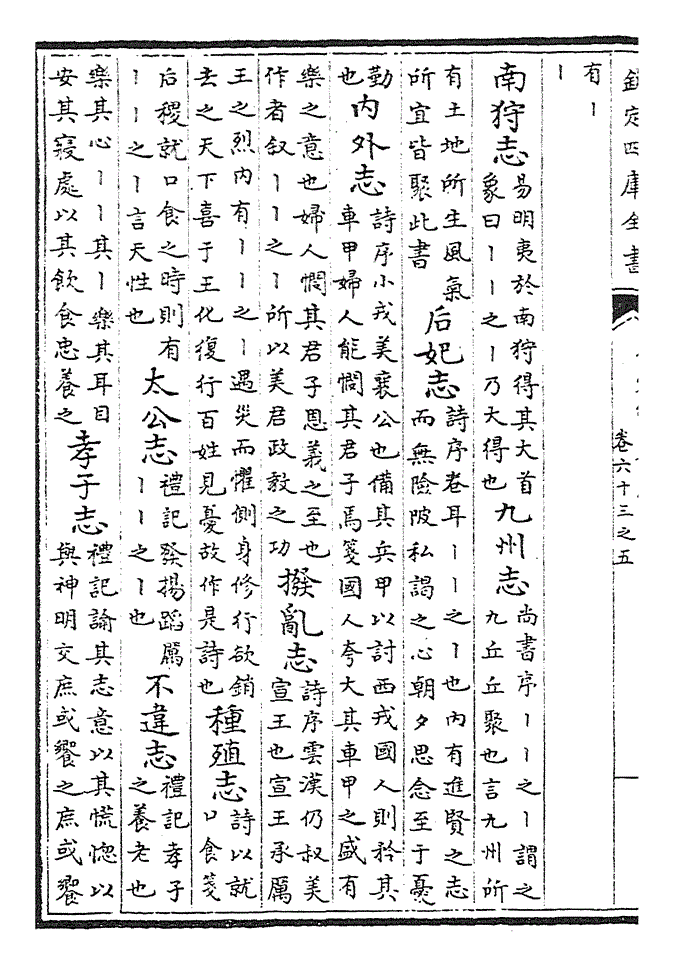 欽定四庫全書
卷六十三之五
有丨
丨
南狩志
易明夷於南狩得其大首
象曰丨丨之丨乃大得也
九州志
尚書序丨丨之丨謂之
九丘丘聚也言九州所
有土地所生風氣
所宜皆聚此書
后妃志
詩序卷耳丨丨之丨也内有進賢之志
而無險陂私謁之心朝夕思念至于憂
勤
也
内外志
詩序小戎美襄公也備其兵甲以討西戎國人則矜其
車甲婦人能憫其君子焉箋國人夸大其車甲之盛有
樂之意也婦人憫其君子恩義之至也
作者叙丨丨之丨所以美君政教之功
撥亂志
詩序雲漢仍叔美
宣王也宣王承厲
王之烈内有丨丨之丨遇災而懼側身修行欲銷
去之天下喜于王化復行百姓見憂故作是詩也
種殖志
詩以就
口食箋
后稷就口食之時則有
丨丨之丨言天性也
太公志
禮記發揚蹈厲
丨丨之丨也
不違志
禮記孝子
之養老也
樂其心丨丨其丨樂其耳目
安其寢處以其飲食忠養之
孝子志
禮記諭其志意以其慌惚以
與神明交庶或饗之庶或饗